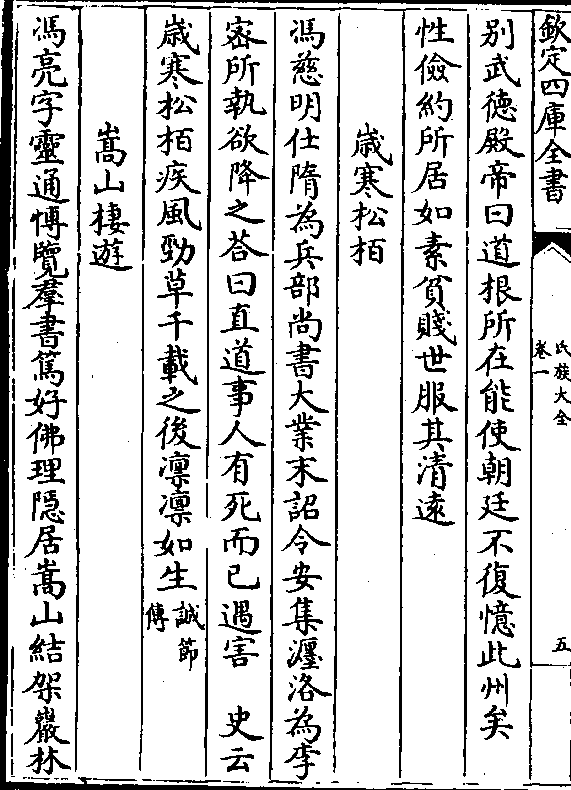 欽定四庫全書
氏族大全
卷一
五
别武德殿帝曰道根所在能使朝廷不復憶此州矣
性儉約所居如素貧賤世服其清逺
歳寒松栢
馮慈明仕隋為兵部尚書大業末詔令安集瀍洛為李
宻所執欲降之荅曰直道事人有死而已遇害　史云
歳寒松栢疾風勁草千載之後凛凛如生誠節
傳
嵩山棲遊
馮亮字靈通博覽羣書篤好佛理隠居嵩山結架巖林